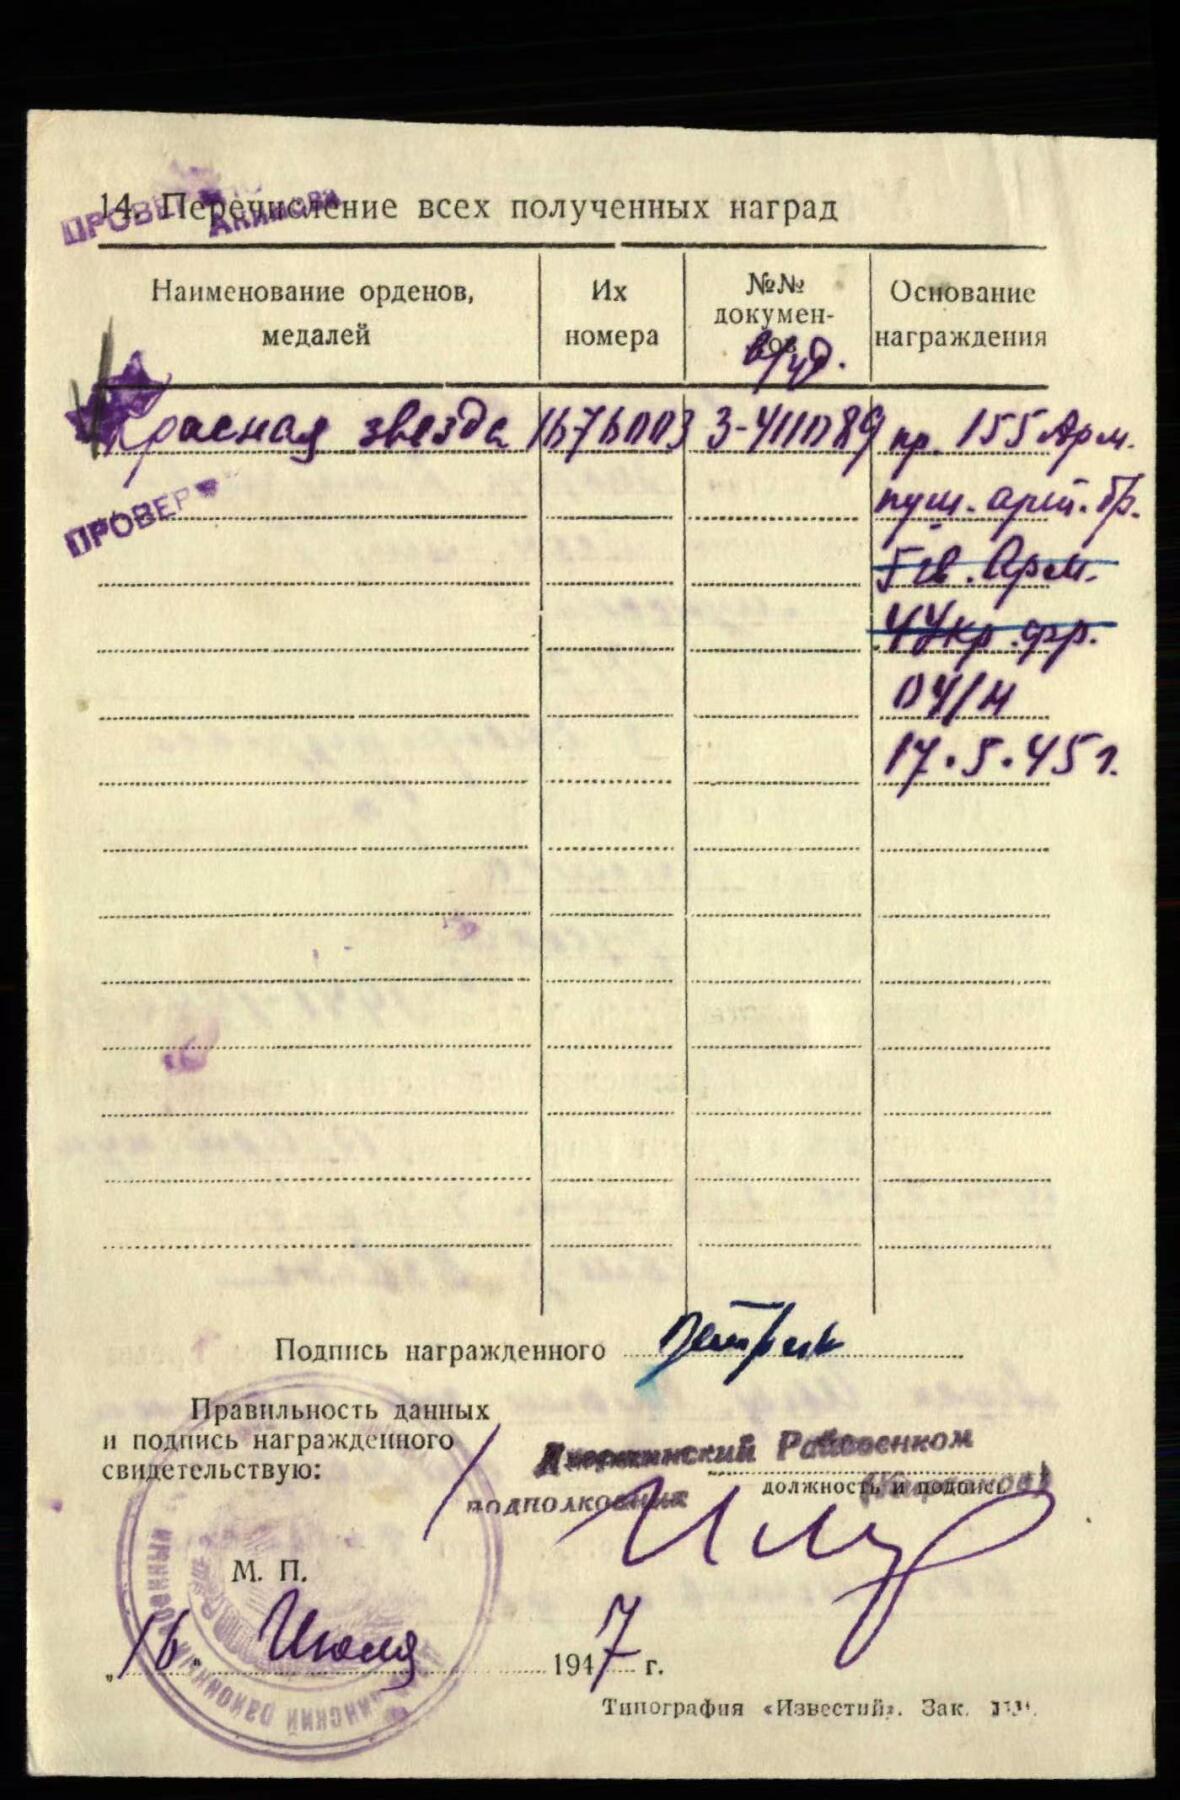 14. Перечисление всех полученных наград
Наименование орденов, медалей
Их номера
№№ докумен-
в/уд.
Основание награждения
Красная звезда 1676003 З-411089 пр. 155 Арм.
пуш. арт. бр.
5 гв. Арм.
4 Укр. фр.
04/н
17.5.45 г.
ПРОВЕР
Подпись награжденного
Правильность данных
и подпись награжденного
свидетельствую:
Райвоенком
подполковник
должность и подпись
М. П.
„16" Июля 1947 г.
Типография «Известий». Зак.